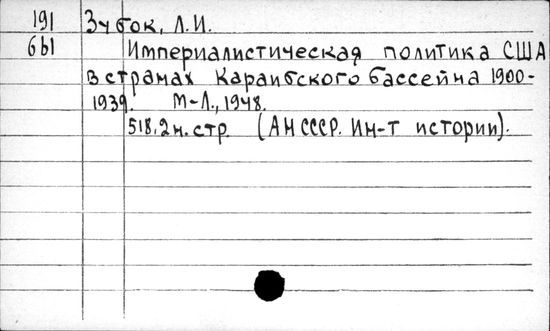 191 Зубок, Л.И.
6Ы Империалистическая политика США
в странах Караибского бассейна 1900-
1939. М-Л., 1948.
518,2н.стр. (АН СССР. Ин-т истории).